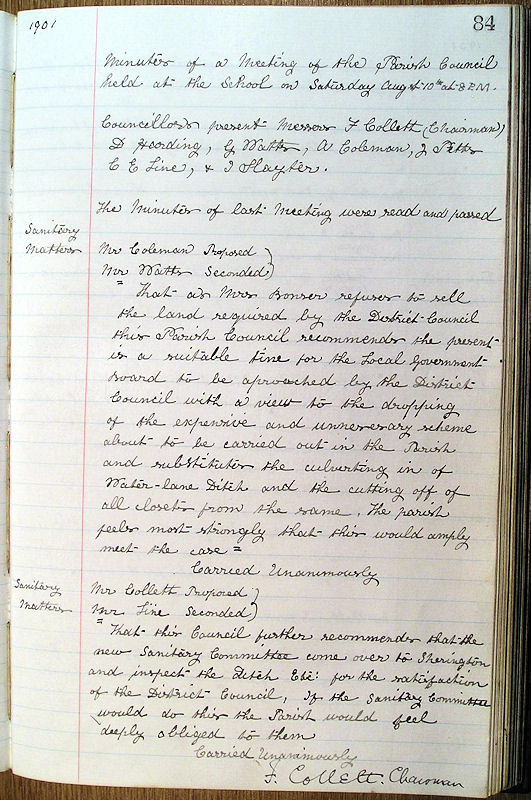 1901
84
Minutes of a Meeting of the Parish Council
held at the School on Saturday Augst 10th at 8 P.M.
Councillors present Messers F Collett (Chairman)
D Hording, G Watts, A Coleman, J Pitts
C E Line, & J Slayter.
The Minutes of last Meeting were read and passed
Sanitary
Matters
Mr Coleman Proposed )
Mr Watts Seconded )
" That as Mrs Bonser refuses to sell
the land required by the District Council
this Parish Council recommends the present
is a suitable time for the Local Government
Board to be aproached by the District
Council with a view to the dropping
of the expensive and unnessary scheme
about to be carried out in the Parish
and substitutes the culverting in of
Water-lane Ditch and the cutting off of
all closets from the same. The parish
feels most strongly that this would amply
meet the case "
Carried Unanimously
Sanitary
Matters
Mr Collett Proposed )
Mr Line Seconded )
" That this Council further recommends that the
new Sanitary Committee come over to Sherington
and inspect the Ditch Etc: for the satisfaction
of the District Council, If the Sanitary Committee
would do this the Parish would feel
deeply obliged to them
Carried Unanimously
F. Collett. Chairman